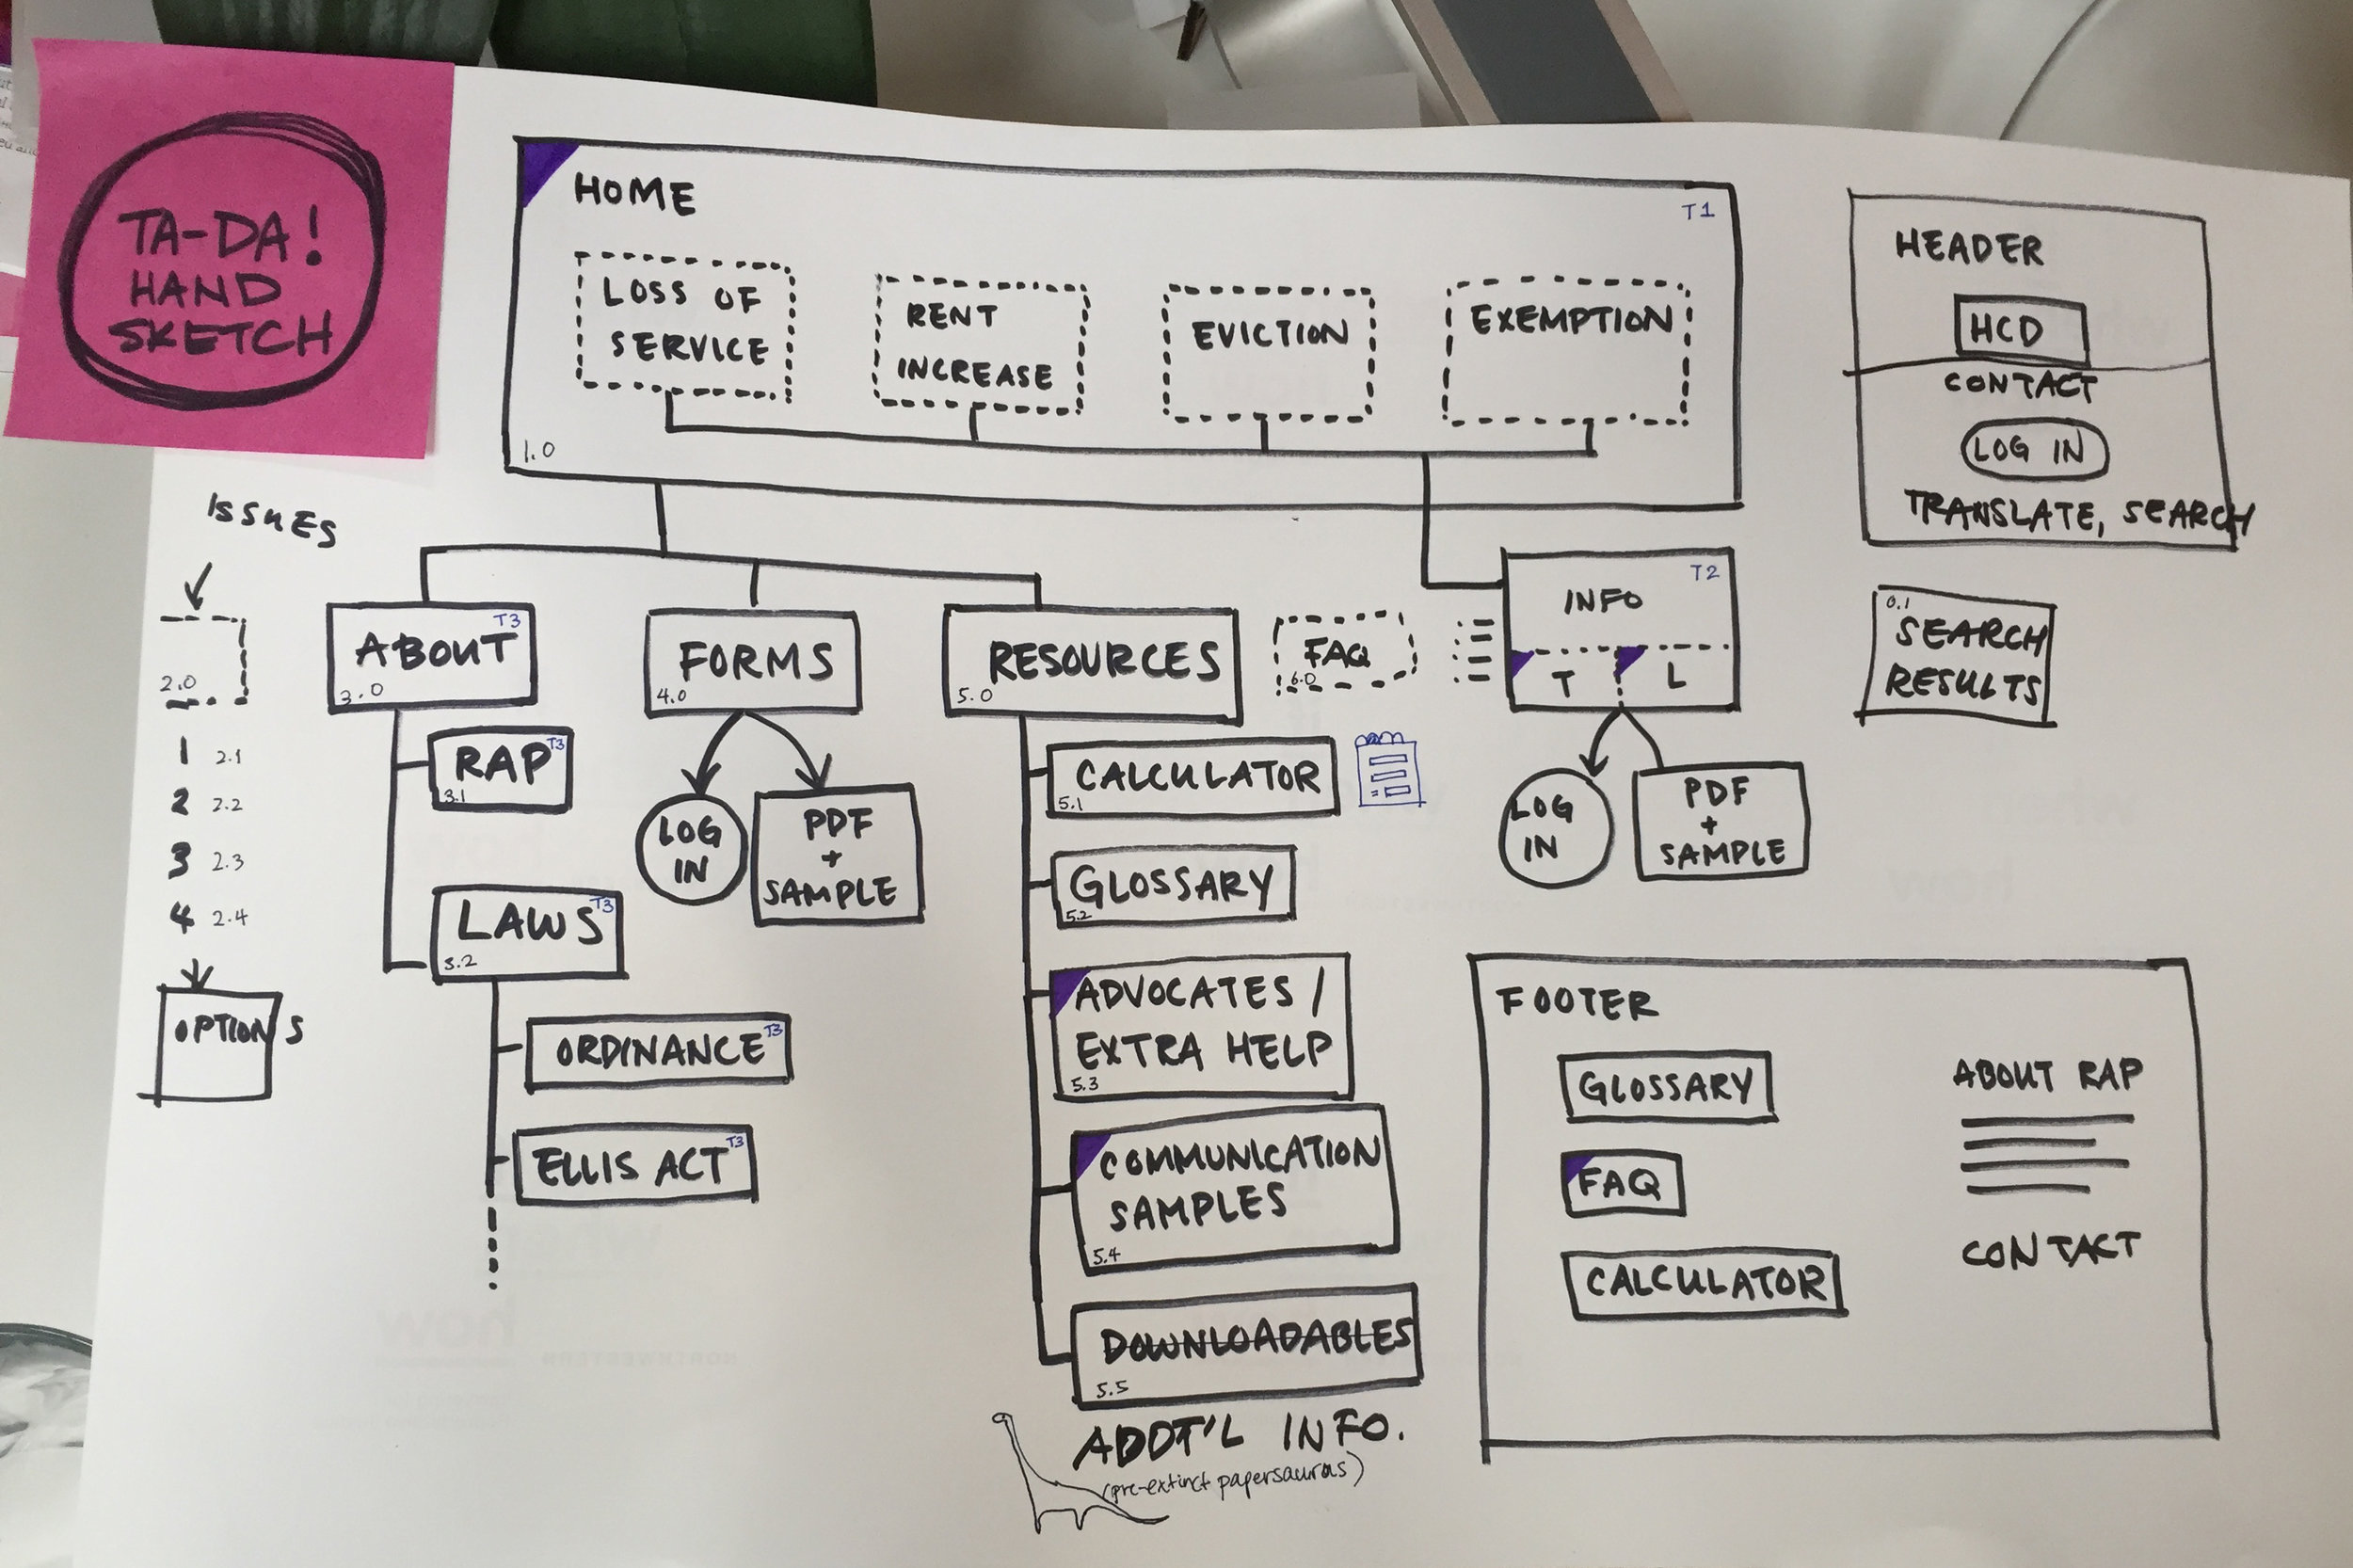 TA-DA!
HAND
SKETCH
HOME
T1
LOSS OF
SERVICE
RENT
INCREASE
EVICTION
EXEMPTION
1.0
HEADER
HCD
CONTACT
LOG IN
TRANSLATE, SEARCH
ISSUES
2.0
1 2.1
2 2.2
3 2.3
4 2.4
OPTIONS
ABOUT
T3
3.0
RAP
T3
3.1
LAWS
T3
3.2
ORDINANCE
T3
ELLIS ACT
T3
FORMS
4.0
LOG
IN
PDF
+
SAMPLE
RESOURCES
5.0
CALCULATOR
5.1
GLOSSARY
5.2
ADVOCATES /
EXTRA HELP
5.3
COMMUNICATION
SAMPLES
5.4
DOWNLOADABLES
5.5
ADDT'L INFO.
(pre-extinct papersaurus)
FAQ
6.0
INFO
T2
T
L
LOG
IN
PDF
+
SAMPLE
0.1
SEARCH
RESULTS
FOOTER
GLOSSARY
FAQ
CALCULATOR
ABOUT RAP
CONTACT